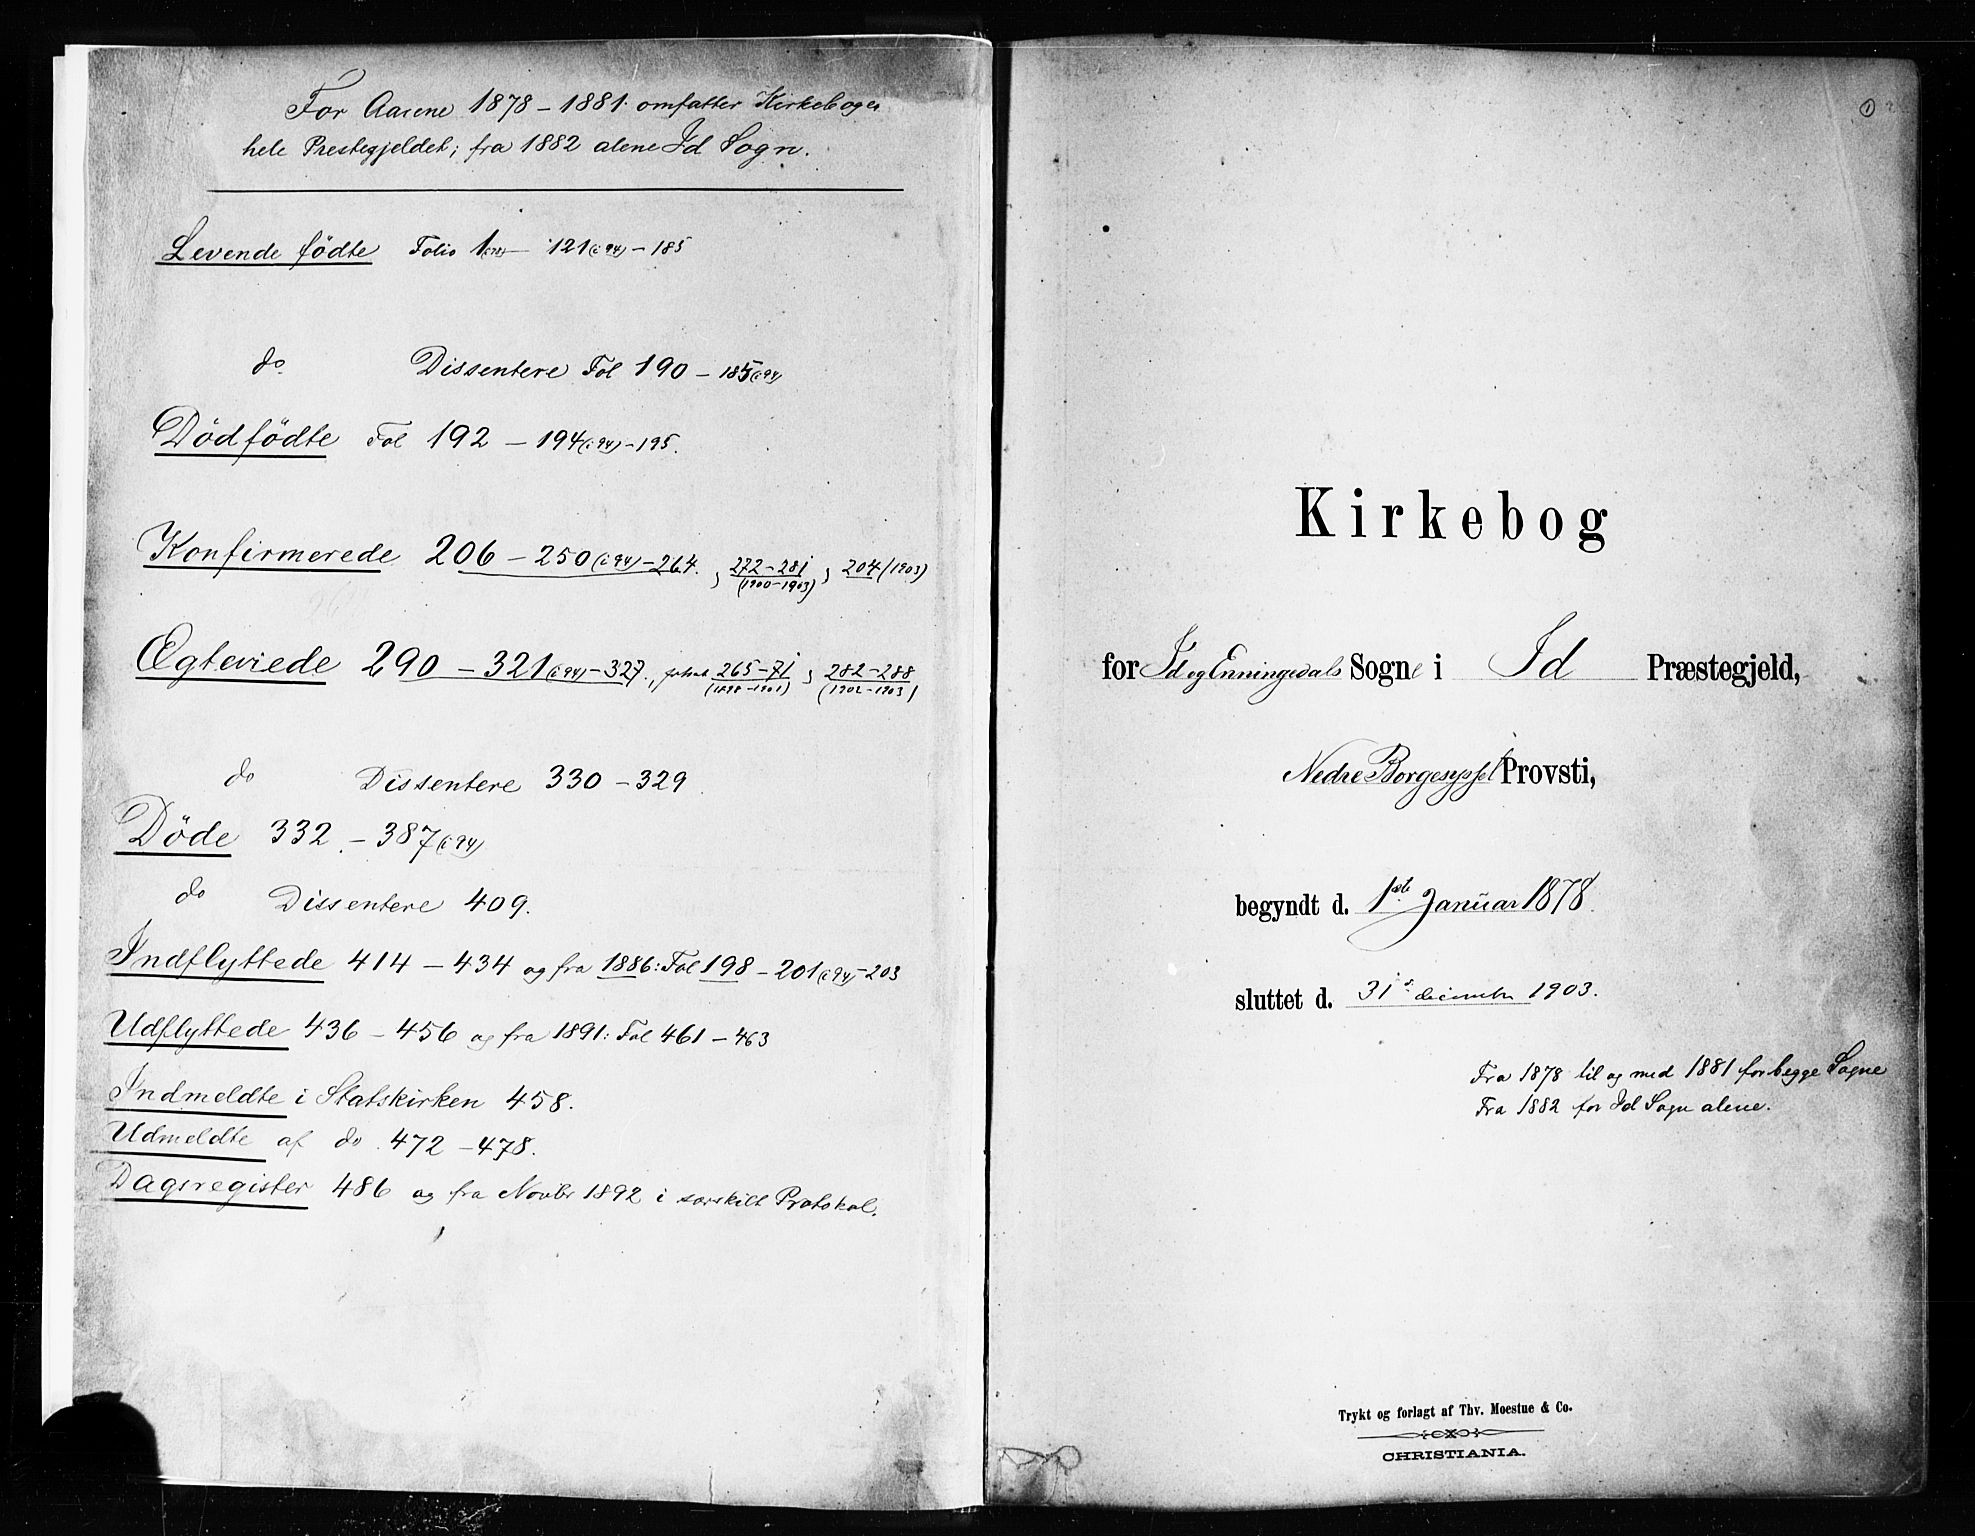 For Aarene 1878 – 1881 omfatter Kirkebogen
hele Prestegjeldet; fra 1882 alene Id Sogn.
Levende fødte Folio 1 – 121 (i 94) – 185
do Dissentere Fol 190 – 185 (i 94)
Dødfødte Fol 192 – 194 (i 94) – 195.
Konfirmerede 206 – 250 (i 94) – 264. ; 272 – 281 ; 204 (1903)
(1900 – 1903)
Ægteviede 290 – 321 (i 94) – 327., 265 – 71 ; 282 – 288
(1898 – 1901) (1902 – 1903)
do Dissentere 330 – 329
Døde 332 – 387 (i 94)
do Dissentere 409.
Indflyttede 414 – 434 og fra 1886: Fol 198 – 201 (i 94) – 203
Udflyttede 436 – 456 og fra 1891: Fol 461 – 463
Indmeldte i Statskirken 458.
Udmeldte af do. 472 – 478.
Dagsregister 486 og fra Novbr 1892 i særskilt Protokol.
1
Kirkebog
for Id og Enningedals Sogne i Id Præstegjeld,
Nedre Borgesyssel Provsti,
begyndt d. 1ste Januar 1878.
sluttet d. 31. december 1903.
Fra 1878 til og med 1881 for begge Sogne
Fra 1882 for Id Sogn alene.
Trykt og forlagt af Thv. Moestue & Co.
CHRISTIANIA.